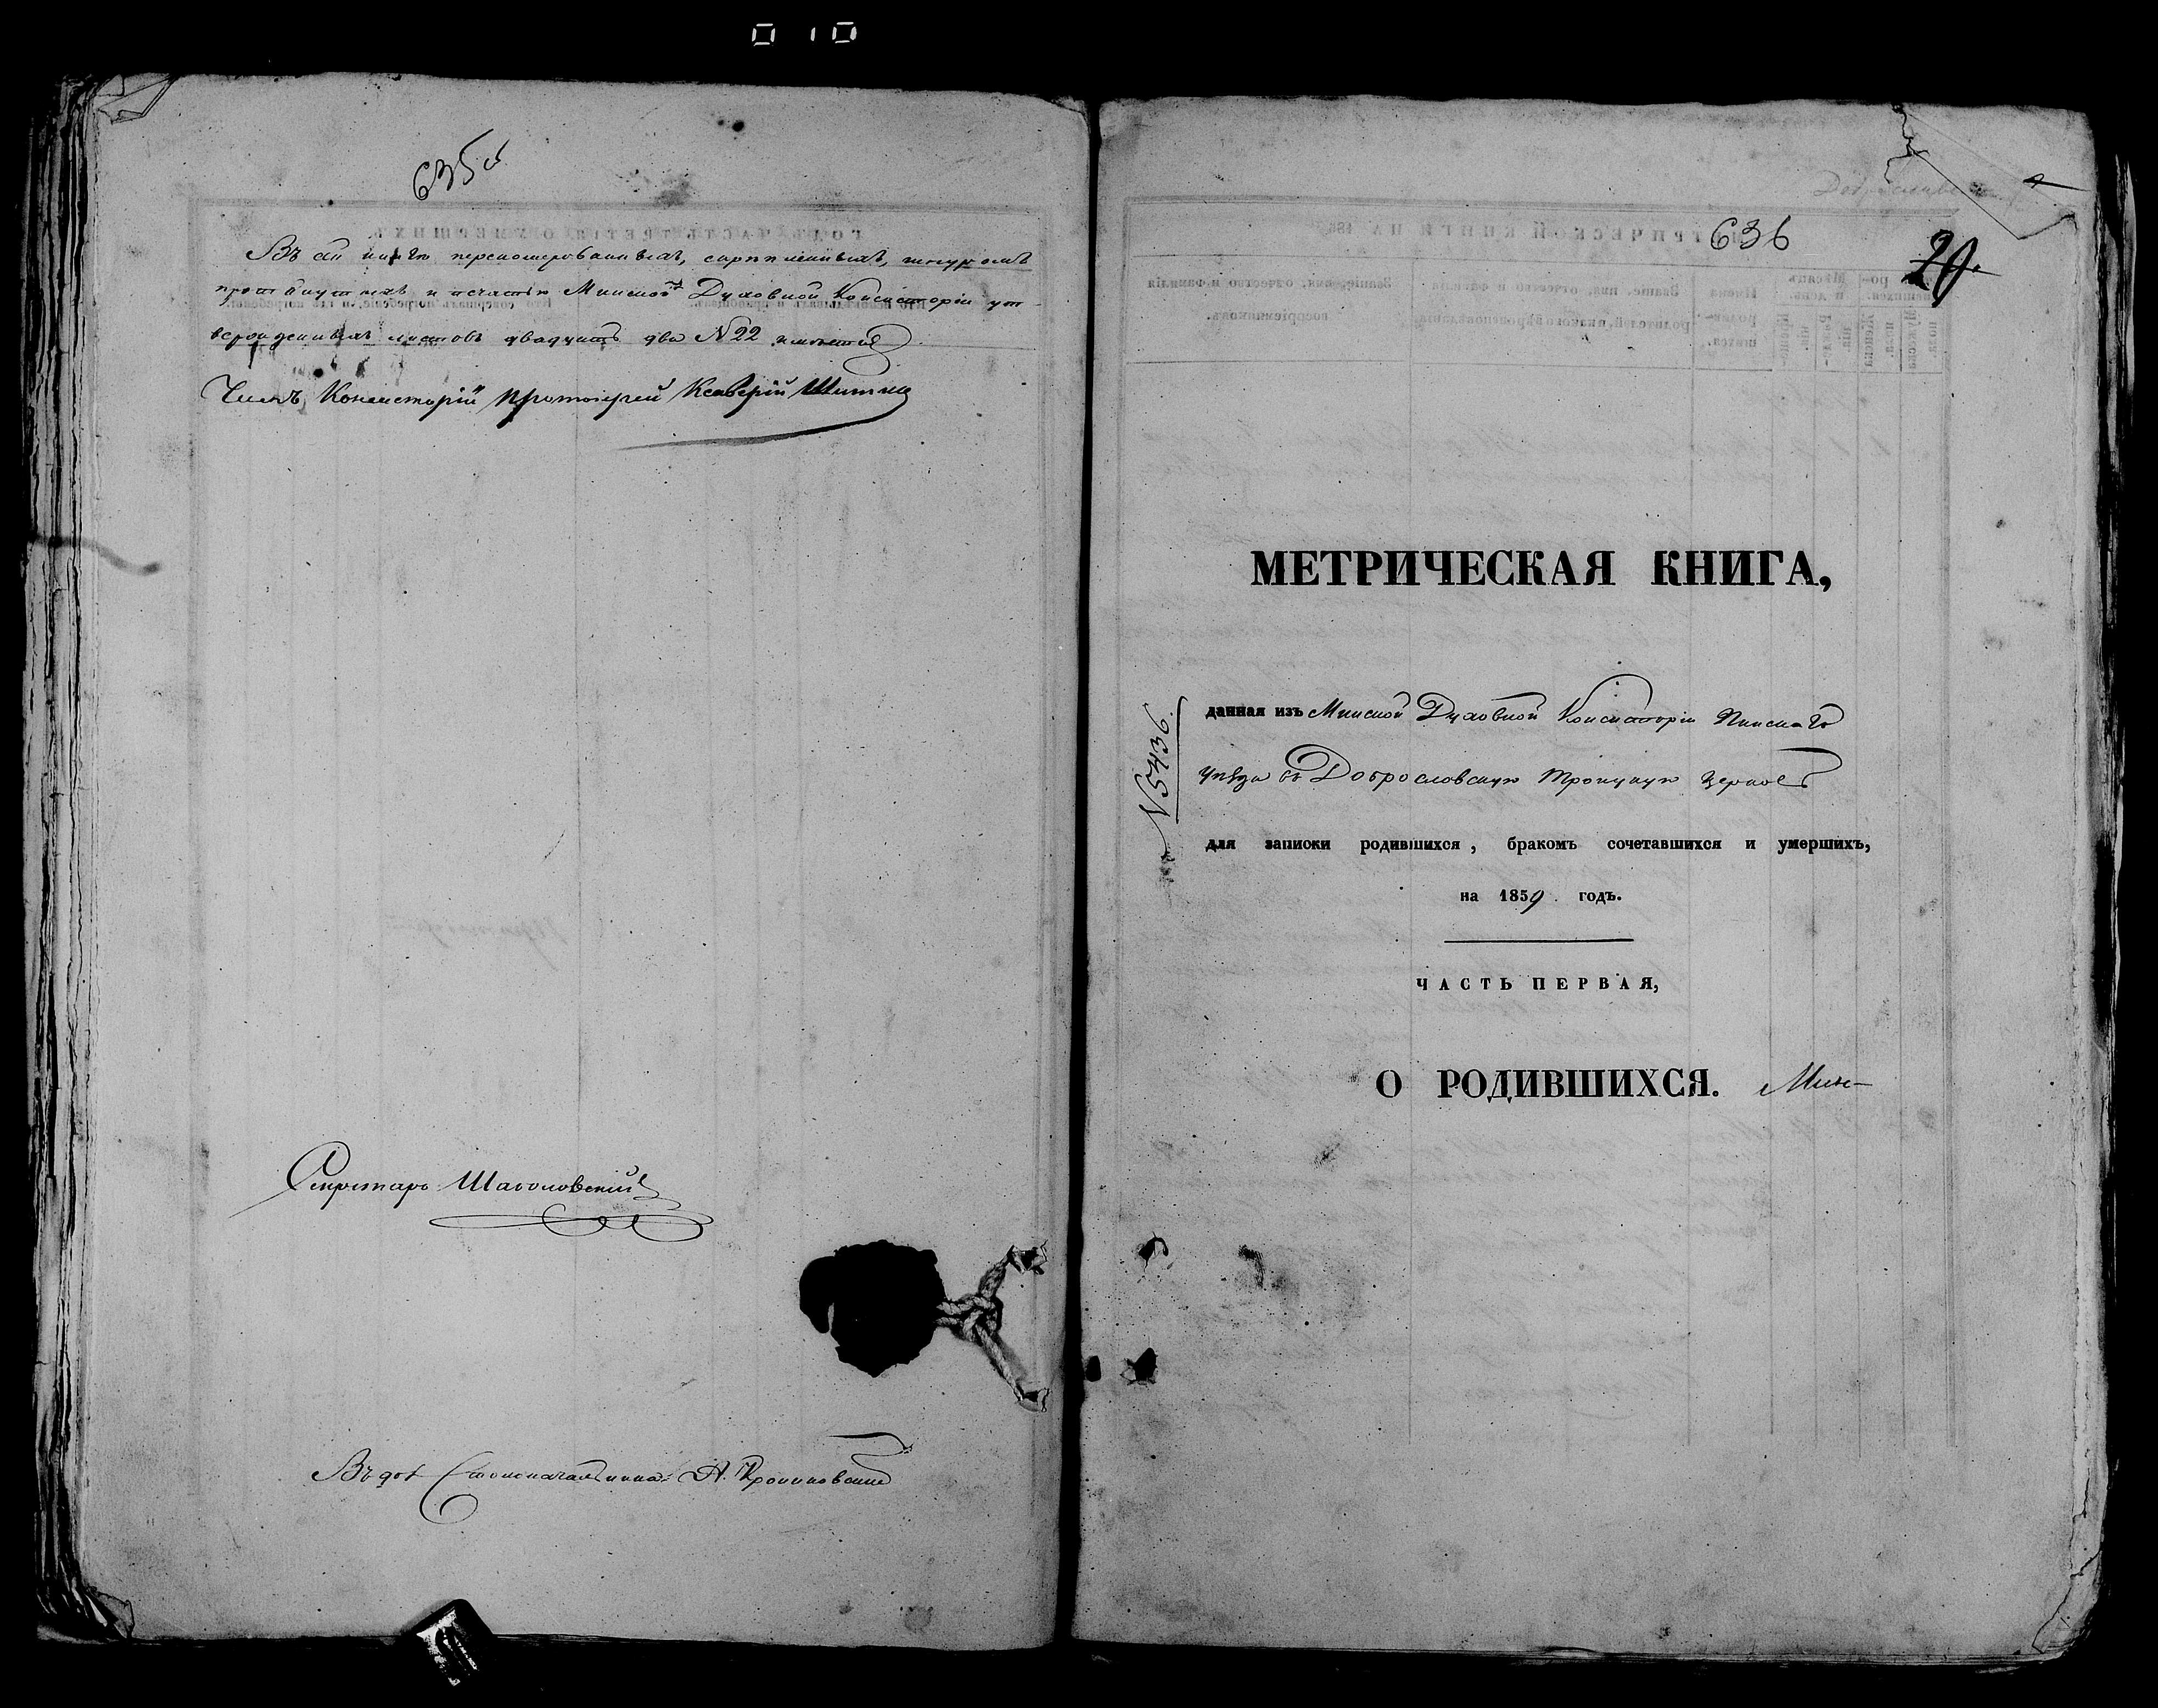 010
635об
Въ сей книгѣ перенумерованныхъ, скрѣпленныхъ, шнуромъ
протянутыхъ и печатью Минской Духовной Консисторіи ут-
вержденныхъ листовъ двадцать два N 22 имѣется
Членъ Консисторіи Протоіерей Ксаверій
Секретарь
Столоначальника А.
636
20.
МЕТРИЧЕСКАЯ КНИГА,
N 5436.
данная изъ Минской Духовной Консисторіи Пинскаго
уѣзда въ Доброславскую Троицкую церковь
для записки родившихся, бракомъ сочетавшихся и умершихъ,
на 1859 годъ.
ЧАСТЬ ПЕРВАЯ,
О РОДИВШИХСЯ. Мин-